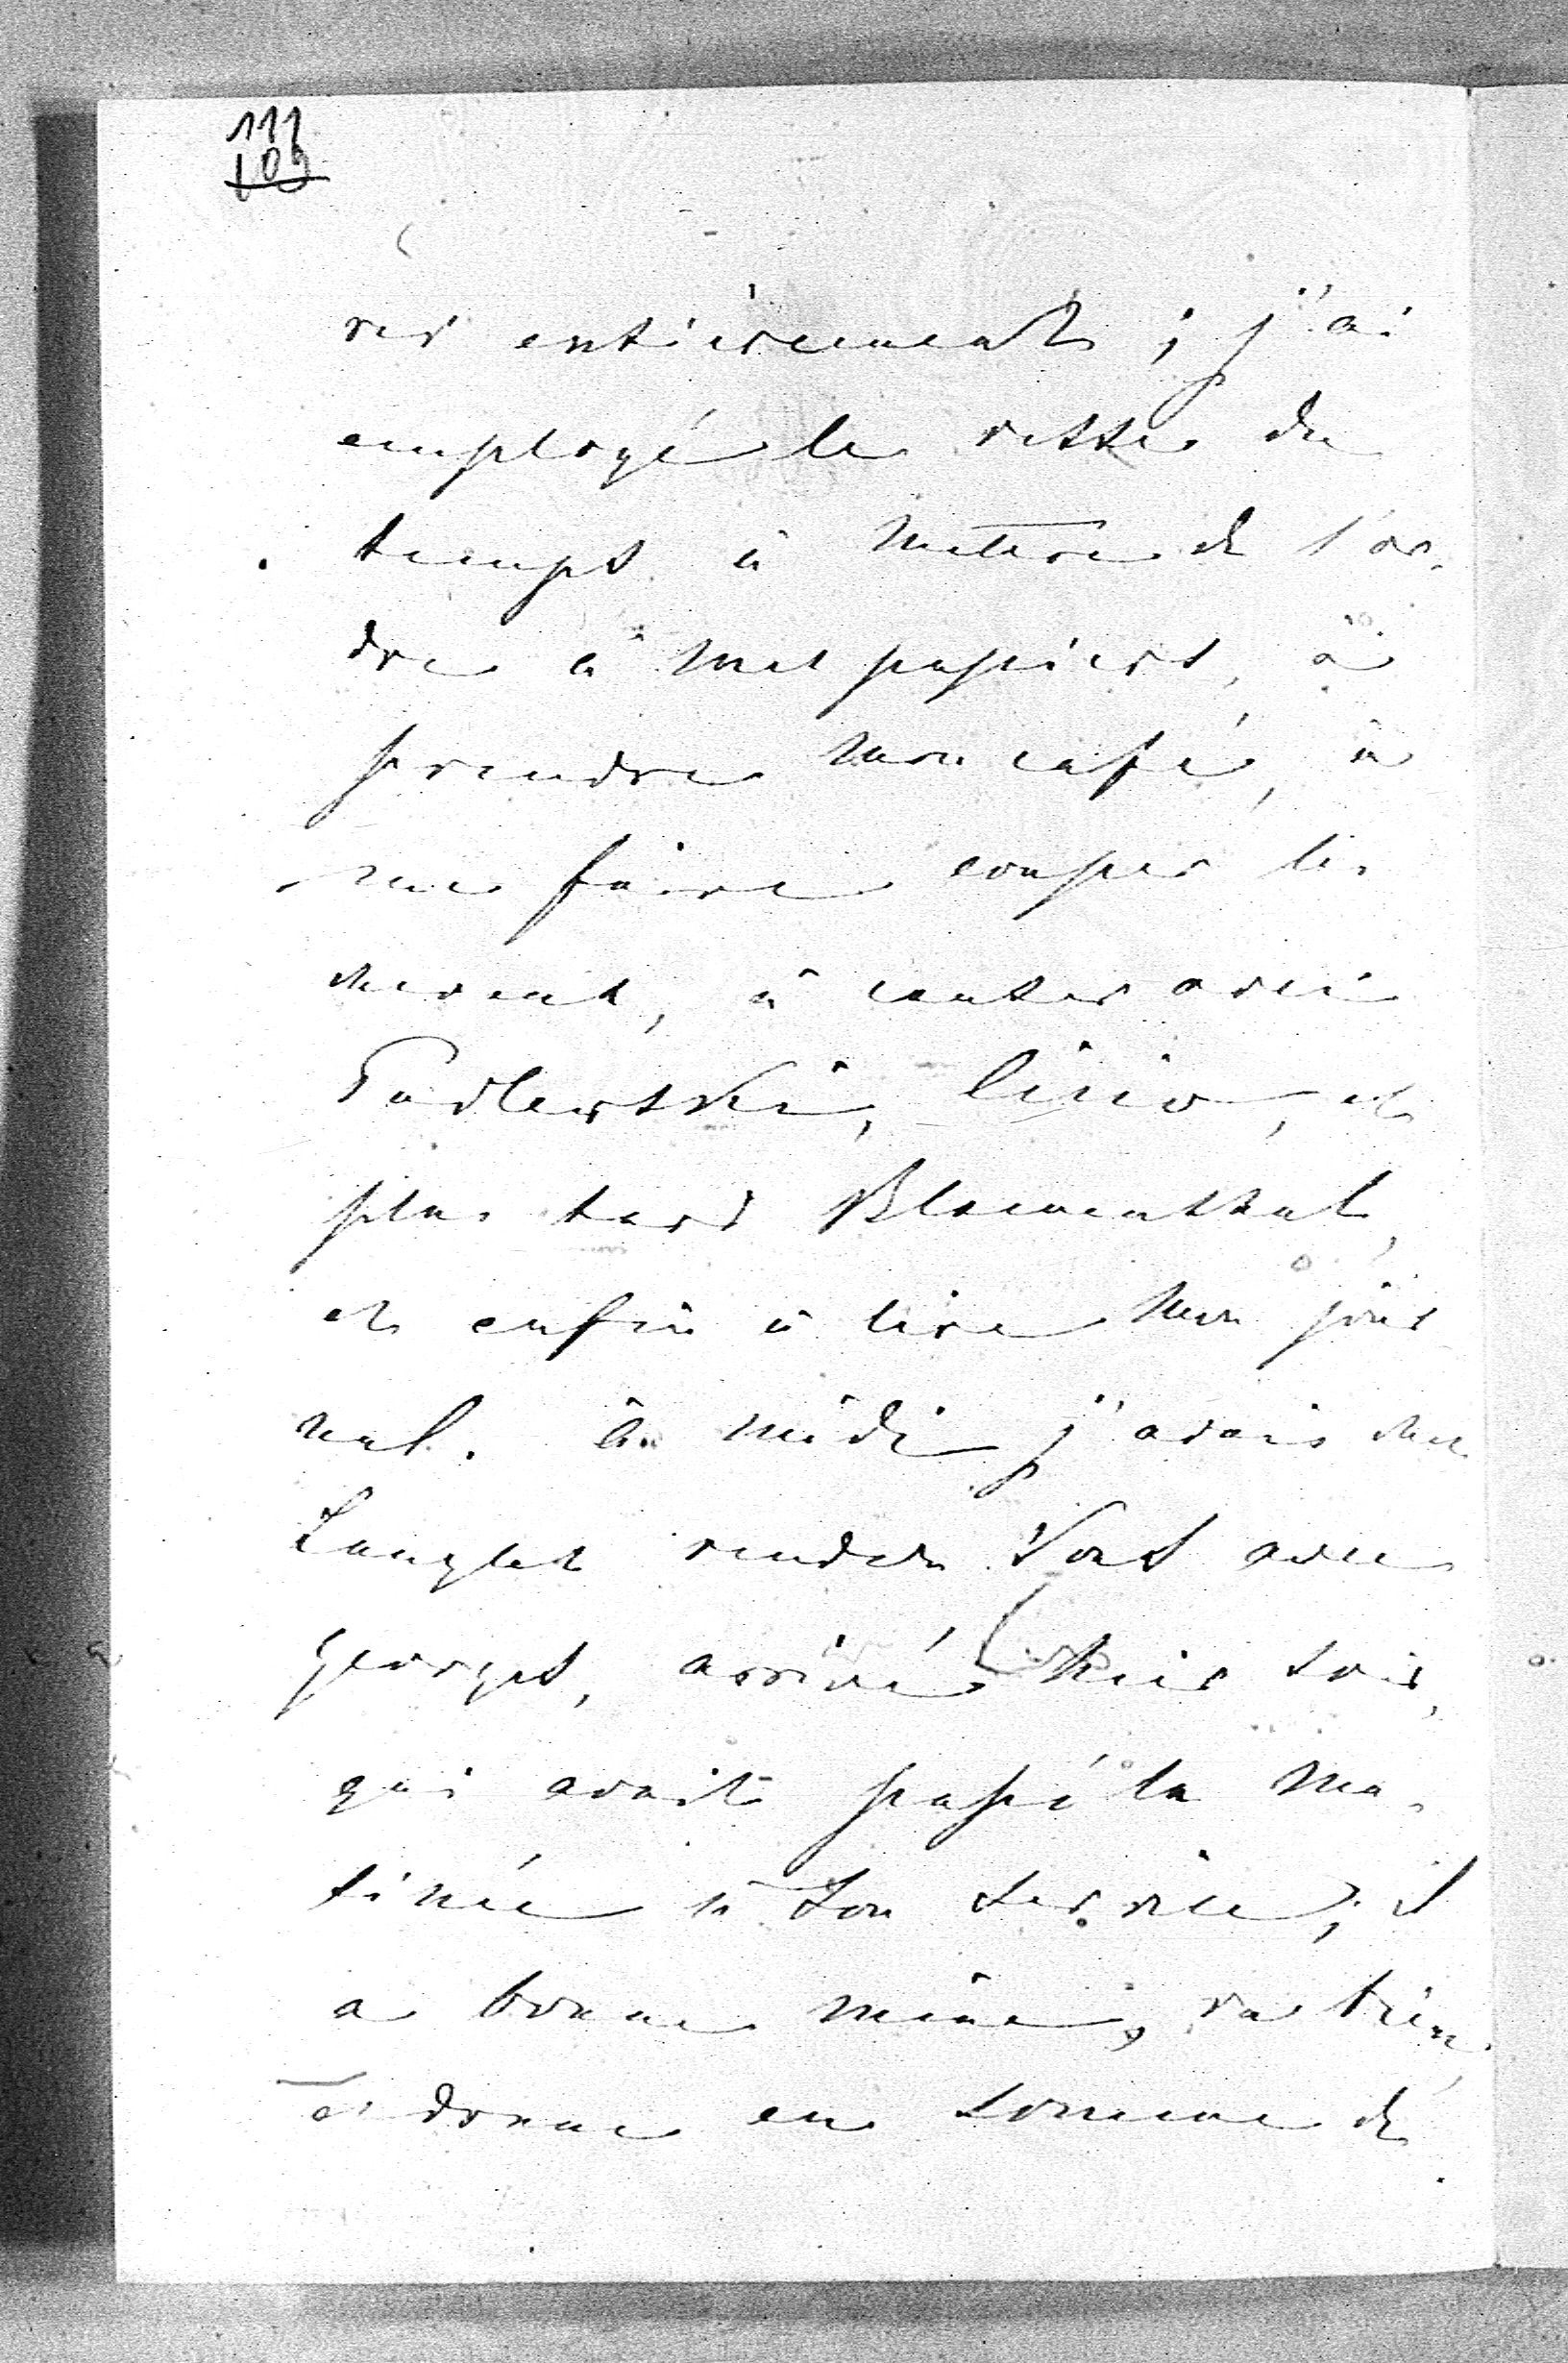 111
109
rer entièrement; j'ai
employé le reste du
temps à mettre de l'or-
dre à mes papiers, à
prendre mon café, à
me faire couper les
cheveux, à causer avec
Padlewski, et
plus tard Blumenthal,
et enfin à lire mon jour
nal. à midi j'avais chez
Langlet rendez vous avec
Georges, arrivé hier soir,
qui avait passé la ma-
tinée à son service; il
a bonne mine,
donne en somme de